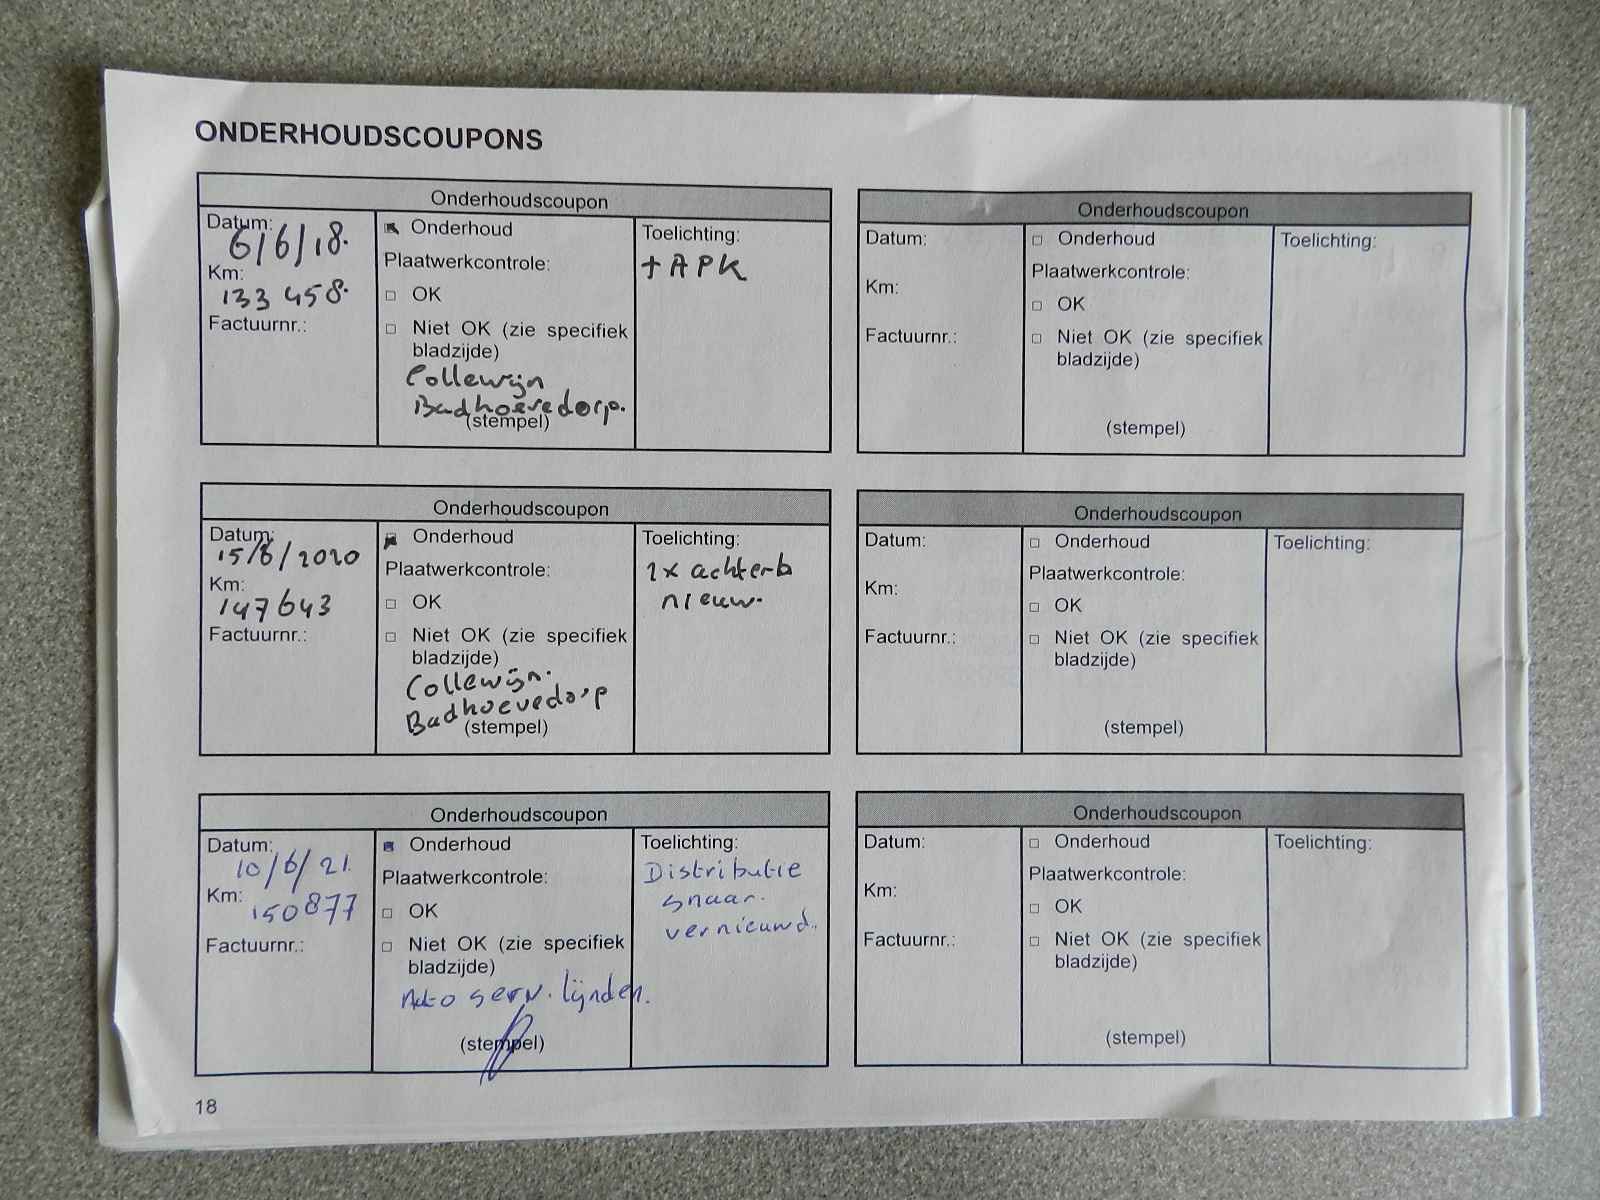 ONDERHOUDSCOUPONS
Onderhoudscoupon
Datum:
6/6/18.
Km:
133 458.
Factuurnr.:
Onderhoud
Plaatwerkcontrole:
OK
Niet OK (zie specifiek
bladzijde)
Collewijn
Badhoevedorp.
(stempel)
Toelichting:
+ APK
Onderhoudscoupon
Datum:
Km:
Factuurnr.:
Onderhoud
Plaatwerkcontrole:
OK
Niet OK (zie specifiek
bladzijde)
(stempel)
Toelichting:
Onderhoudscoupon
Datum:
15/6/2020
Km:
147643
Factuurnr.:
Onderhoud
Plaatwerkcontrole:
OK
Niet OK (zie specifiek
bladzijde)
Collewijn.
Badhoevedorp
(stempel)
Toelichting:
2x achterb
nieuw.
Onderhoudscoupon
Datum:
Km:
Factuurnr.:
Onderhoud
Plaatwerkcontrole:
OK
Niet OK (zie specifiek
bladzijde)
(stempel)
Toelichting:
Onderhoudscoupon
Datum:
10/6/21
Km:
150877
Factuurnr.:
Onderhoud
Plaatwerkcontrole:
OK
Niet OK (zie specifiek
bladzijde)
Auto serv. lijnden.
(stempel)
Toelichting:
Distributie
snaar.
vernieuwd.
Onderhoudscoupon
Datum:
Km:
Factuurnr.:
Onderhoud
Plaatwerkcontrole:
OK
Niet OK (zie specifiek
bladzijde)
(stempel)
Toelichting:
18